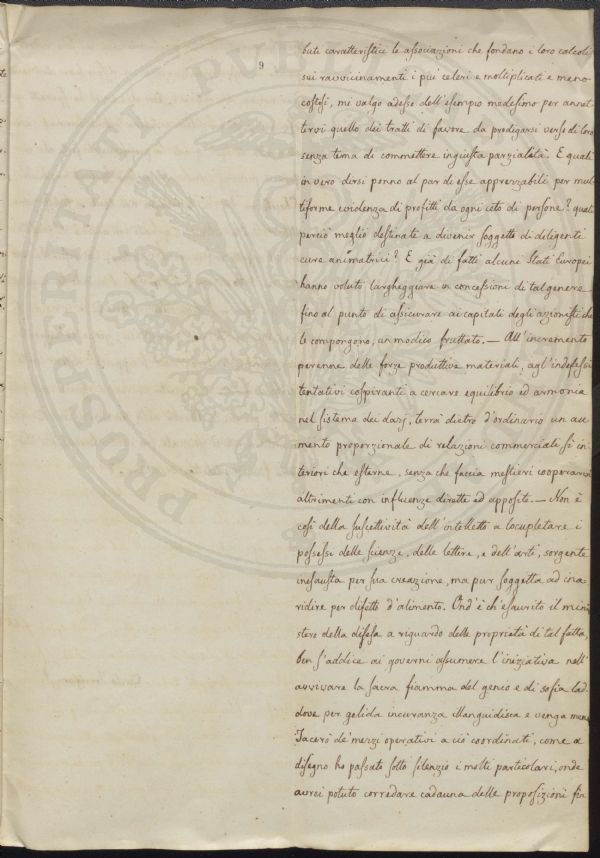 9
bute caratteristice le associazioni che fondano i loro calcoli
sui ravvicinamenti i più celeri e moltiplicati e meno
costosi, mi valgo adesso dell'esempio medesimo per annet-
tervi quello dei tratti di favore da prodigarsi verso di loro
senza tema di commettere ingiusta parzialità. E quali
in vero dirsi ponno al par di esse apprezzabili per mul
tiforme evidenza di profitti da ogni ceto di persone? quali
perciò meglio destinate a divenir soggetto di diligenti
cure animatrici? E già di fatti alcuni Stati Europei
hanno voluto largheggiare in concessioni di tal genere
fino al punto di assicurare ai capitali degli azionisti che
le compongono, un modico fruttato. — All'incremento
perenne delle forze produttive materiali, agl'indefessi
tentativi cospiranti a cercare equilibrio ed armonia
nel sistema dei dazj, terrà dietro d'ordinario un au
mento proporzionale di relazioni commerciali sì in
teriori che esterne, senza che faccia mestieri cooperarvi
altrimenti con influenze dirette ed apposite. — Non è
così della suscettività dell'intelletto a locupletare i
possessi delle scienze, delle lettere, e dell'arti, sorgente
inesausta per sua creazione, ma pur soggetta ad ina
ridire per difetto d'alimento. Ond'è ch'esaurito il mini
stero della difesa a riguardo delle proprietà di tal fatta,
ben s'addice ai governi assumere l'iniziativa nell'
avvivare la sacra fiamma del genio e di sofia lad
dove per gelida incuranza illanguidisca e venga meno
Tacerò de' mezzi operativi a ciò coordinati, come a
disegno ho passato sotto silenzio i molti particolari, onde
avrei potuto corredare cadauna delle proposizioni fin
PROSPERITATI PUBL